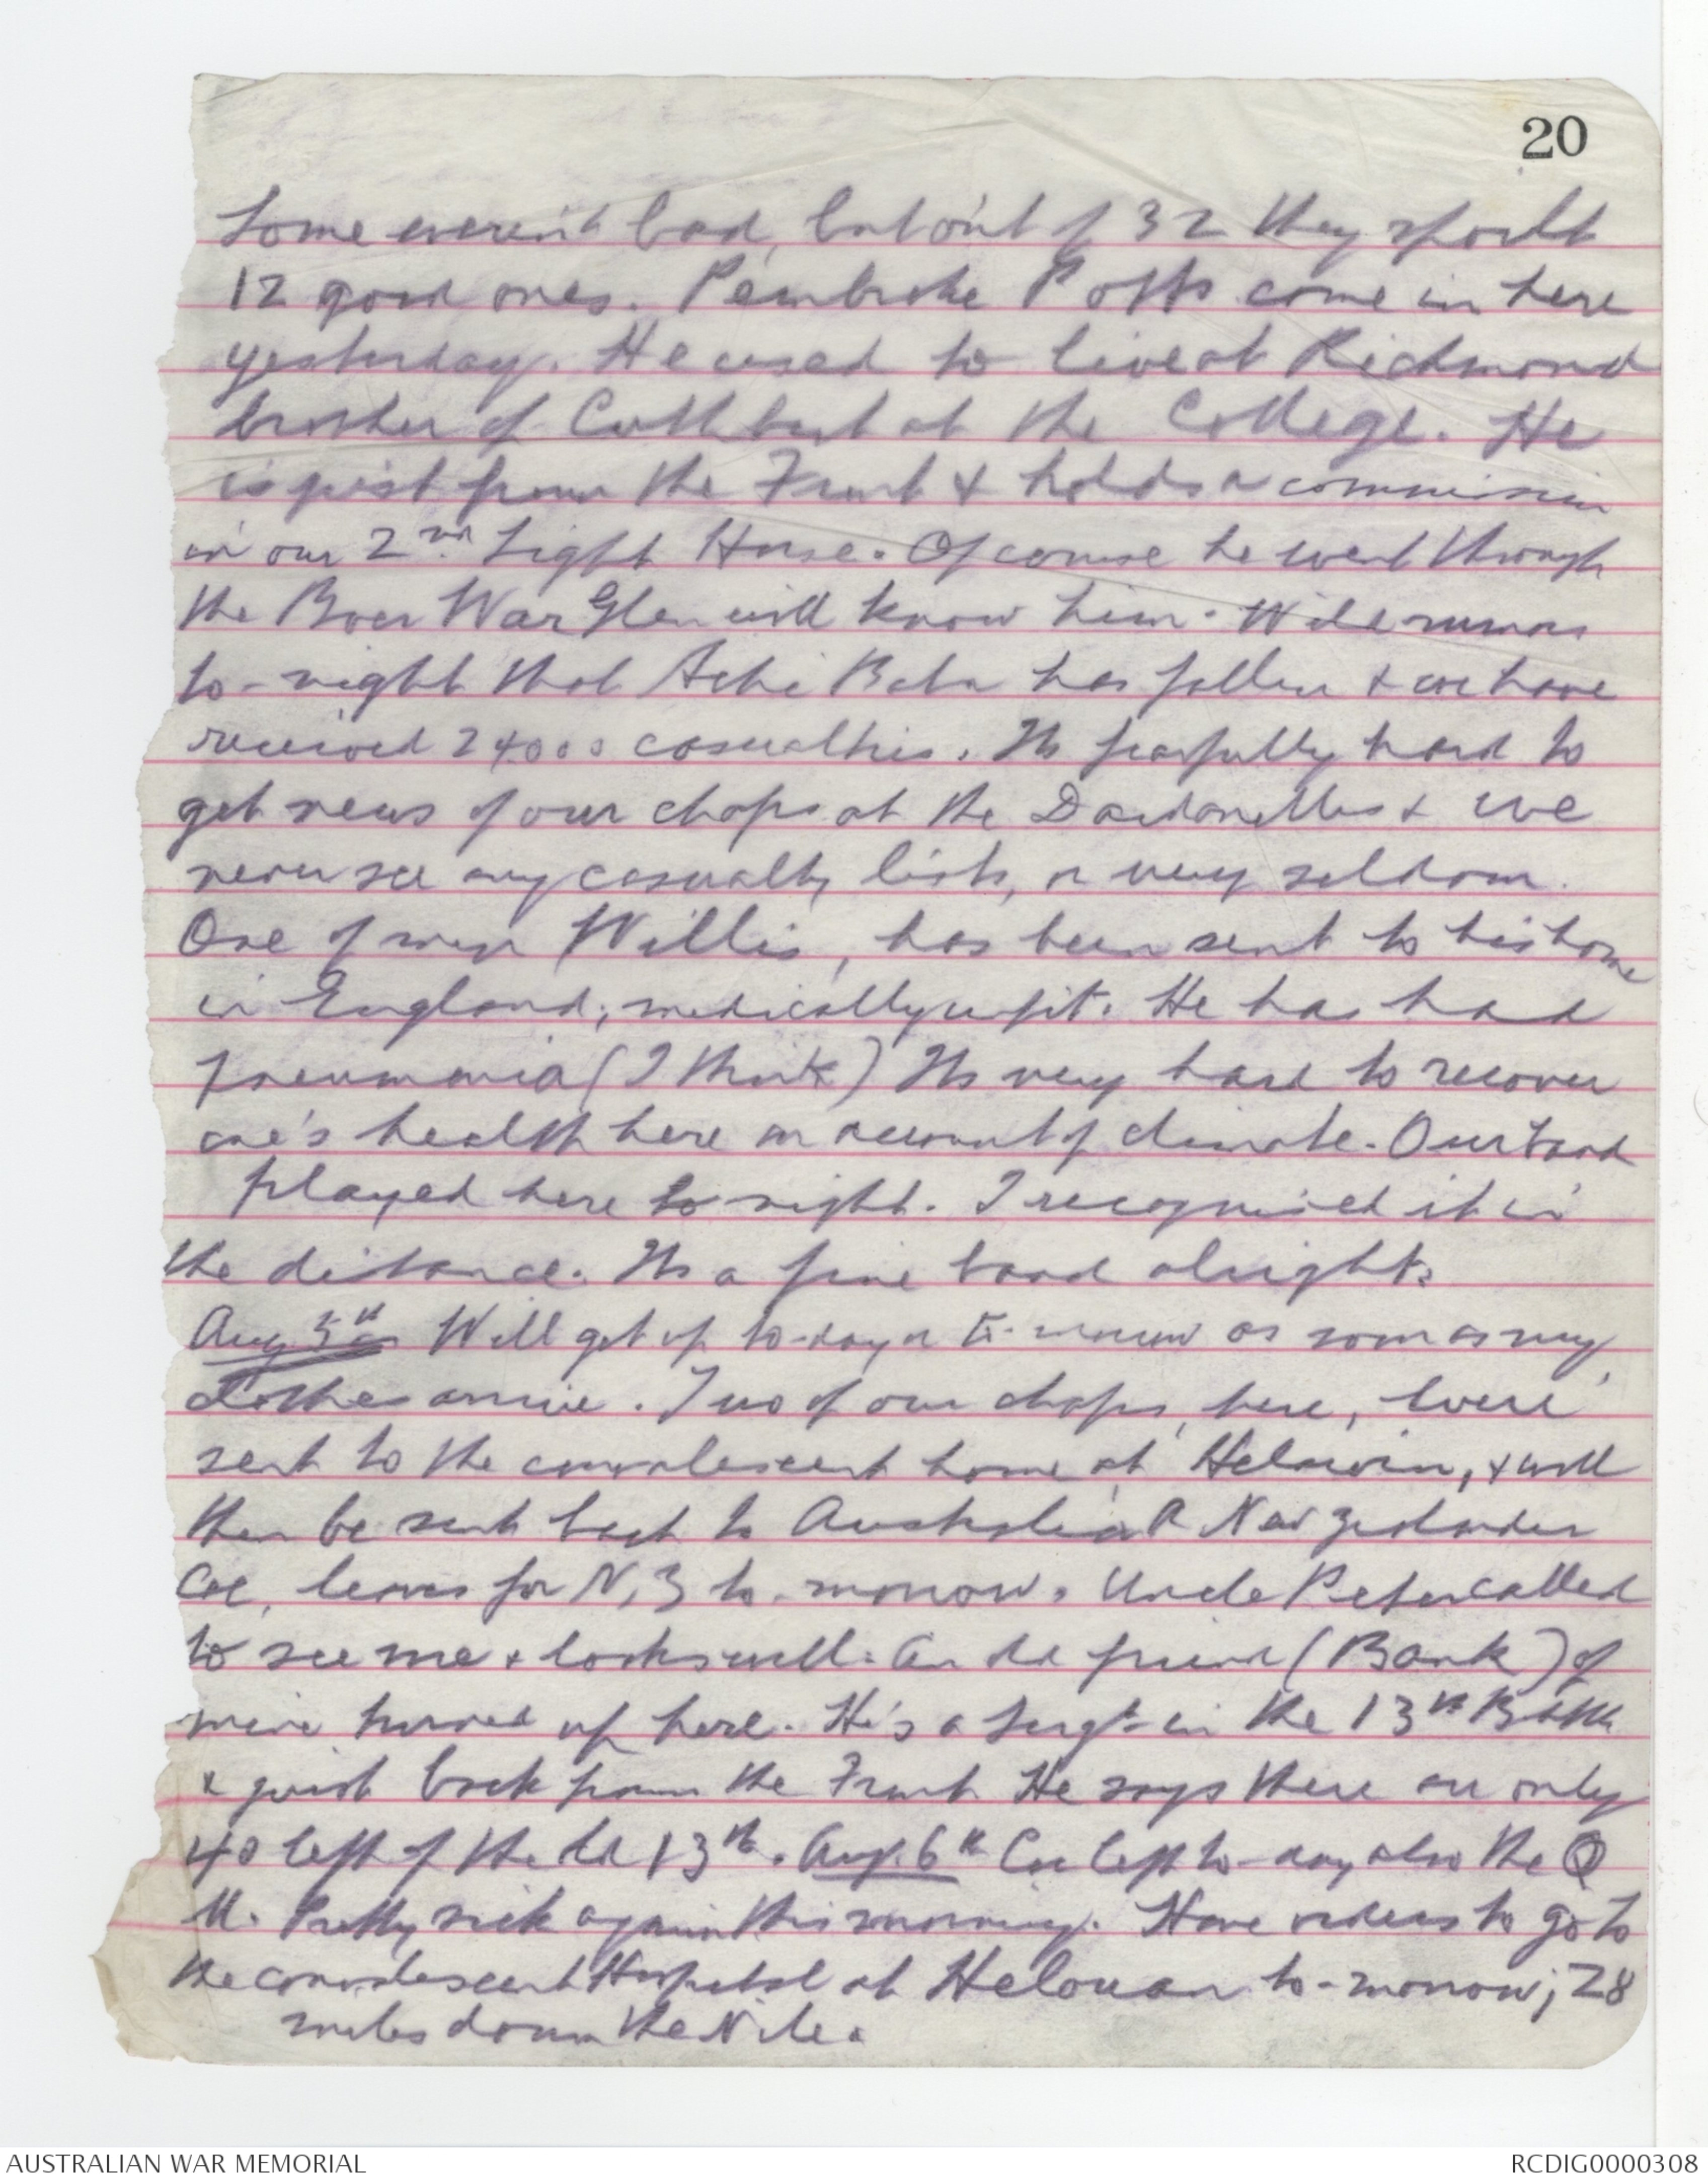 20
Some weren't bad, but out of 32 they spoilt
12 good ones. Pembroke Potts came in here
yesterday. He used to live at Richmond
brother of Cuthbert at the College. He
is just from the Front & holds a commission
in our 2nd Light Horse. Of course he went through
the Boer War Glen will know him. Wild rumors
to-night that Achi Baba has fallen & we have
received 24000 casualties. Its fearfully hard to
get news of our chaps at the Dardanelles & we
never see any casualty lists, or very seldom.
One of men Willis, has been sent to his home
in England, medically unfit. He has had
pneumonia (I think) Its very hard to recover
one's health here on account of climate. Our band
played here to night. I recognised it in
the distance. Its a fine band alright.
Aug 5th Will get up to-day or to-morrow as soon as my
clothes arrive. Two of our chaps, here, were
sent to the convalescent home at Helouin, & will
then be sent back to Australia A New Zealander
Coe, leaves for N.Z to-morrow. Uncle Peter called
to see me & looks well. An old friend (Bank) of
mine turned up here. He's a Sergt in the 13th Battn
& just back from the Front He says there are only
40 left of the old 13th. Aug. 6th Coe left to-day also the Q
M. Pretty sick again this morning. Have orders to go to
the convalescent Hospital at Helouan to-morrow; 28
miles down the Nile.
AUSTRALIAN WAR MEMORIAL
RCDIG0000308